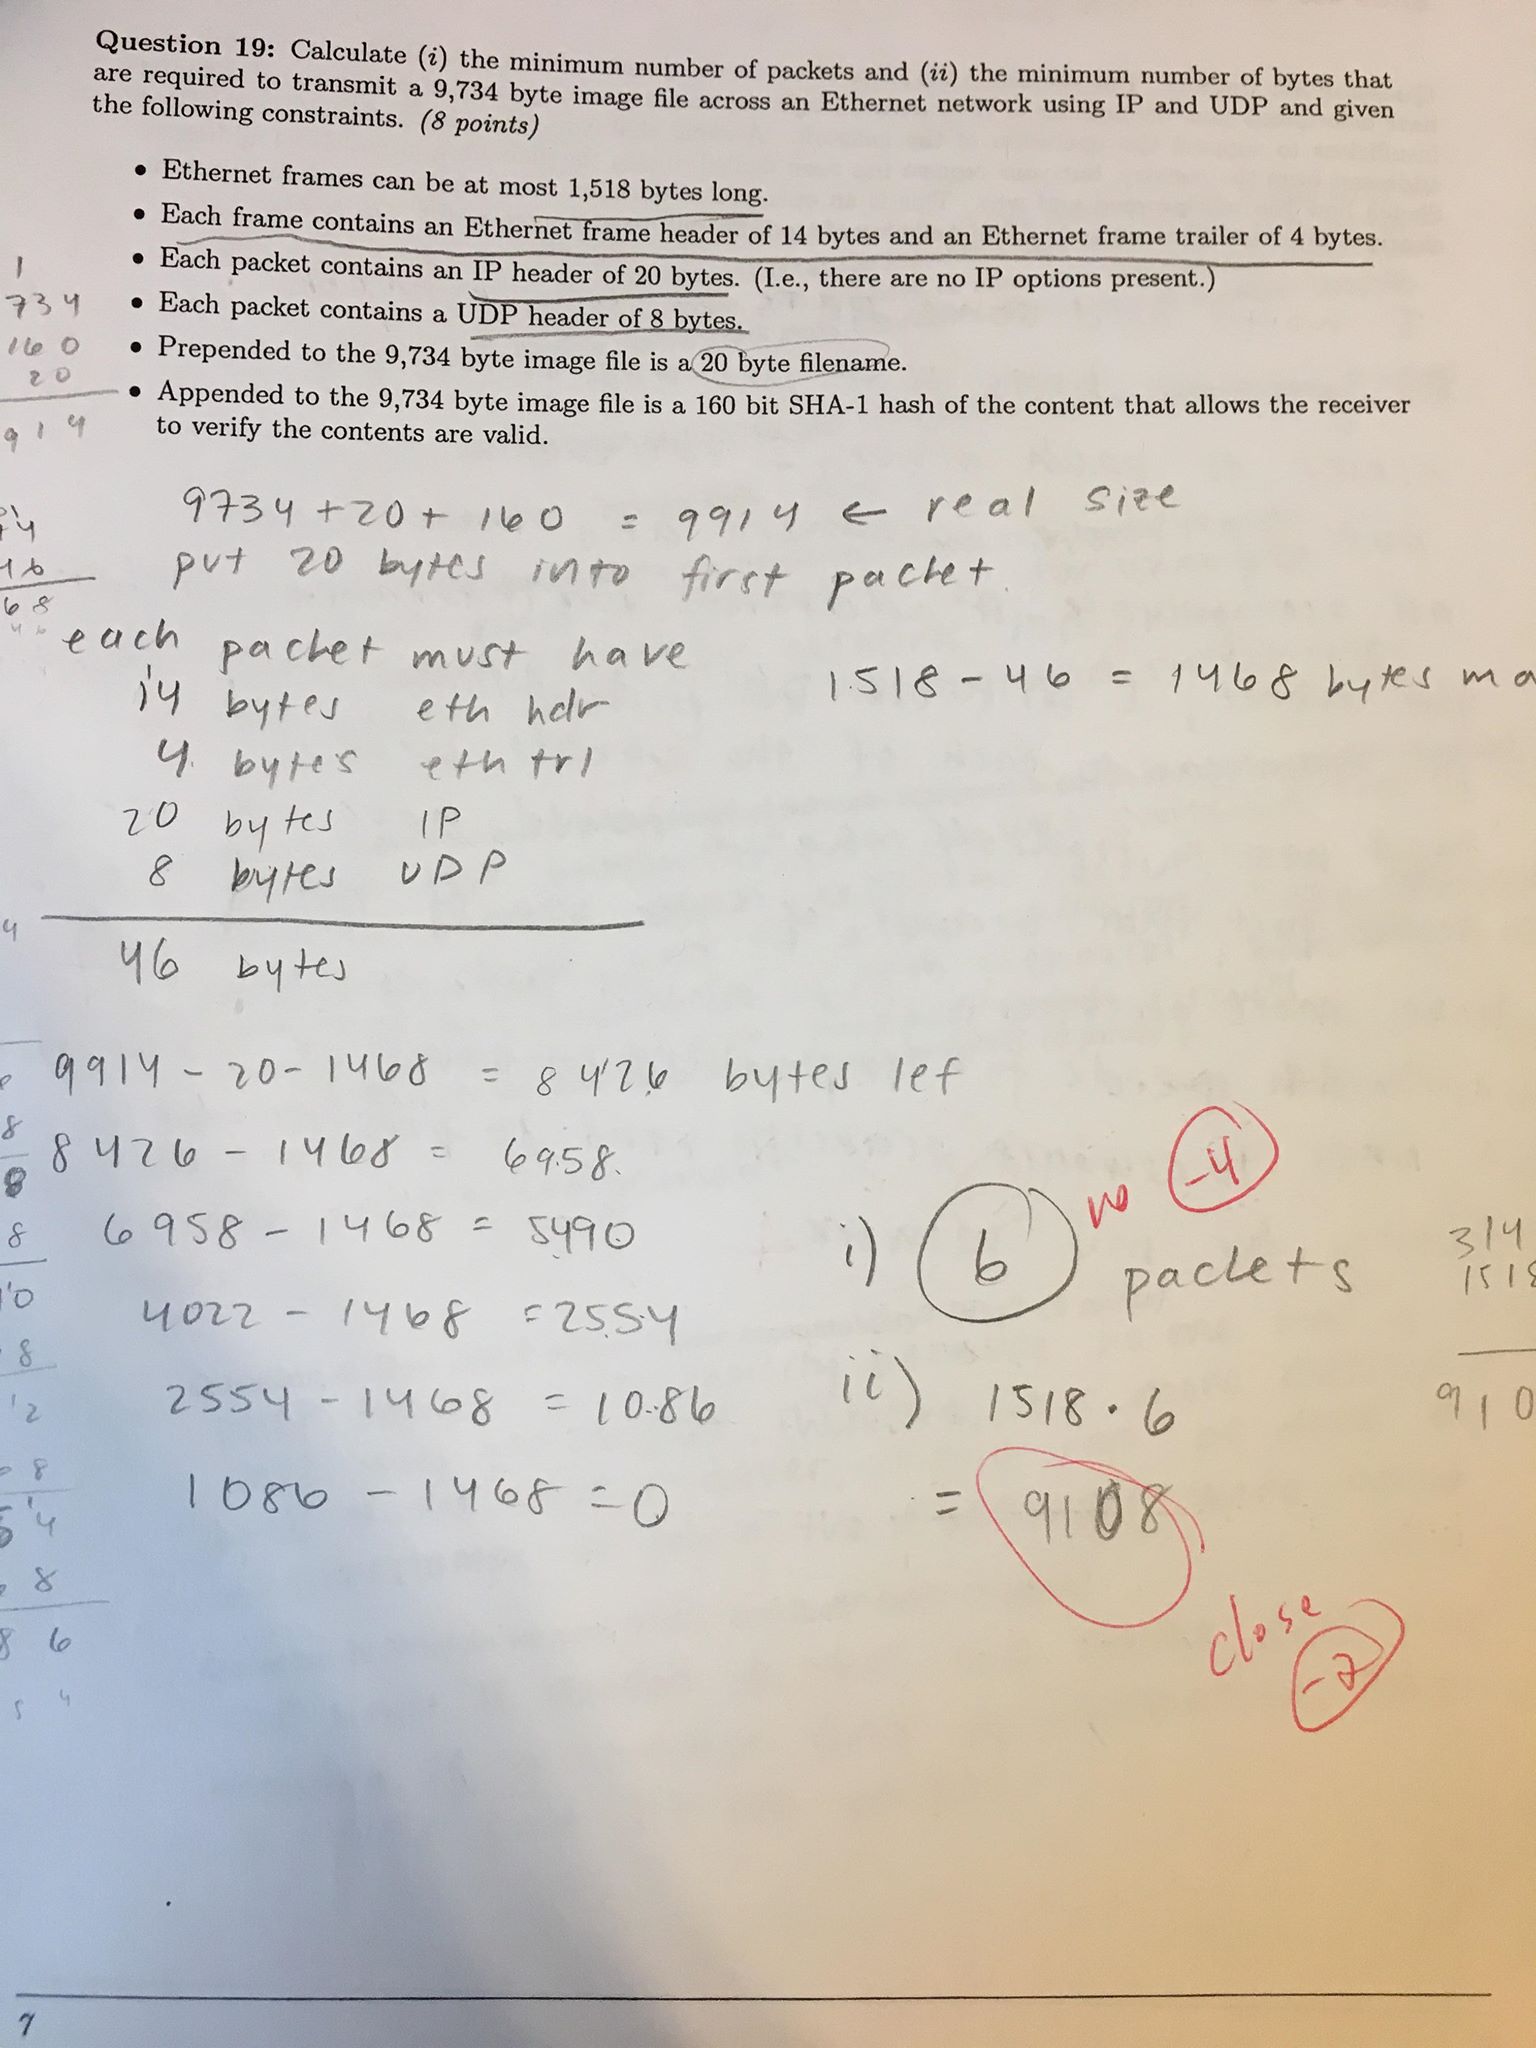 Question 19: Calculate (i) the minimum number of packets and (ii) the minimum number of bytes that
are required to transmit a 9,734 byte image file across an Ethernet network using IP and UDP and given
the following constraints. (8 points)
• Ethernet frames can be at most 1,518 bytes long.
• Each frame contains an Ethernet frame header of 14 bytes and an Ethernet frame trailer of 4 bytes.
• Each packet contains an IP header of 20 bytes. (I.e., there are no IP options present.)
• Each packet contains a UDP header of 8 bytes.
• Prepended to the 9,734 byte image file is a 20 byte filename.
• Appended to the 9,734 byte image file is a 160 bit SHA-1 hash of the content that allows the receiver
to verify the contents are valid.
1
734
160
20
914
9734 + 20 + 160 = 9914 ← real size
put 20 bytes into first packet.
68
each packet must have
14 bytes eth hdr
1518 - 46 = 1468 bytes ma
4 bytes eth trl
20 bytes IP
8 bytes UDP
4
46 bytes
9914 - 20 - 1468 = 8426 bytes lef
8426 - 1468 = 6958.
6958 - 1468 = 5490
4022 - 1468 = 2554
2554 - 1468 = 1086
1086 - 1468 = 0
8
8
8
10
8
12
8
4
8
86
54
i) 6 packets
no -4
ii) 1518 · 6
= 9108
close
-2
314
1518
910
7